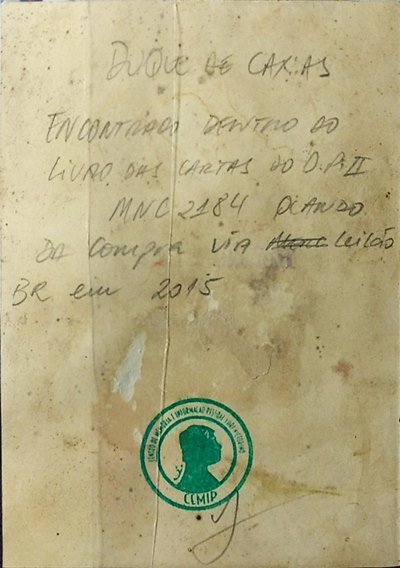 DUQUE DE CAXIAS
ENCONTRADO DENTRO DO
LIVRO DAS CARTAS DO D.P.II
MNC 2184 QUANDO
DA Compra VIA Leilão
BR em 2015
CENTRO DE MEMÓRIA E INFORMAÇÃO PESSOAL
CEMIP